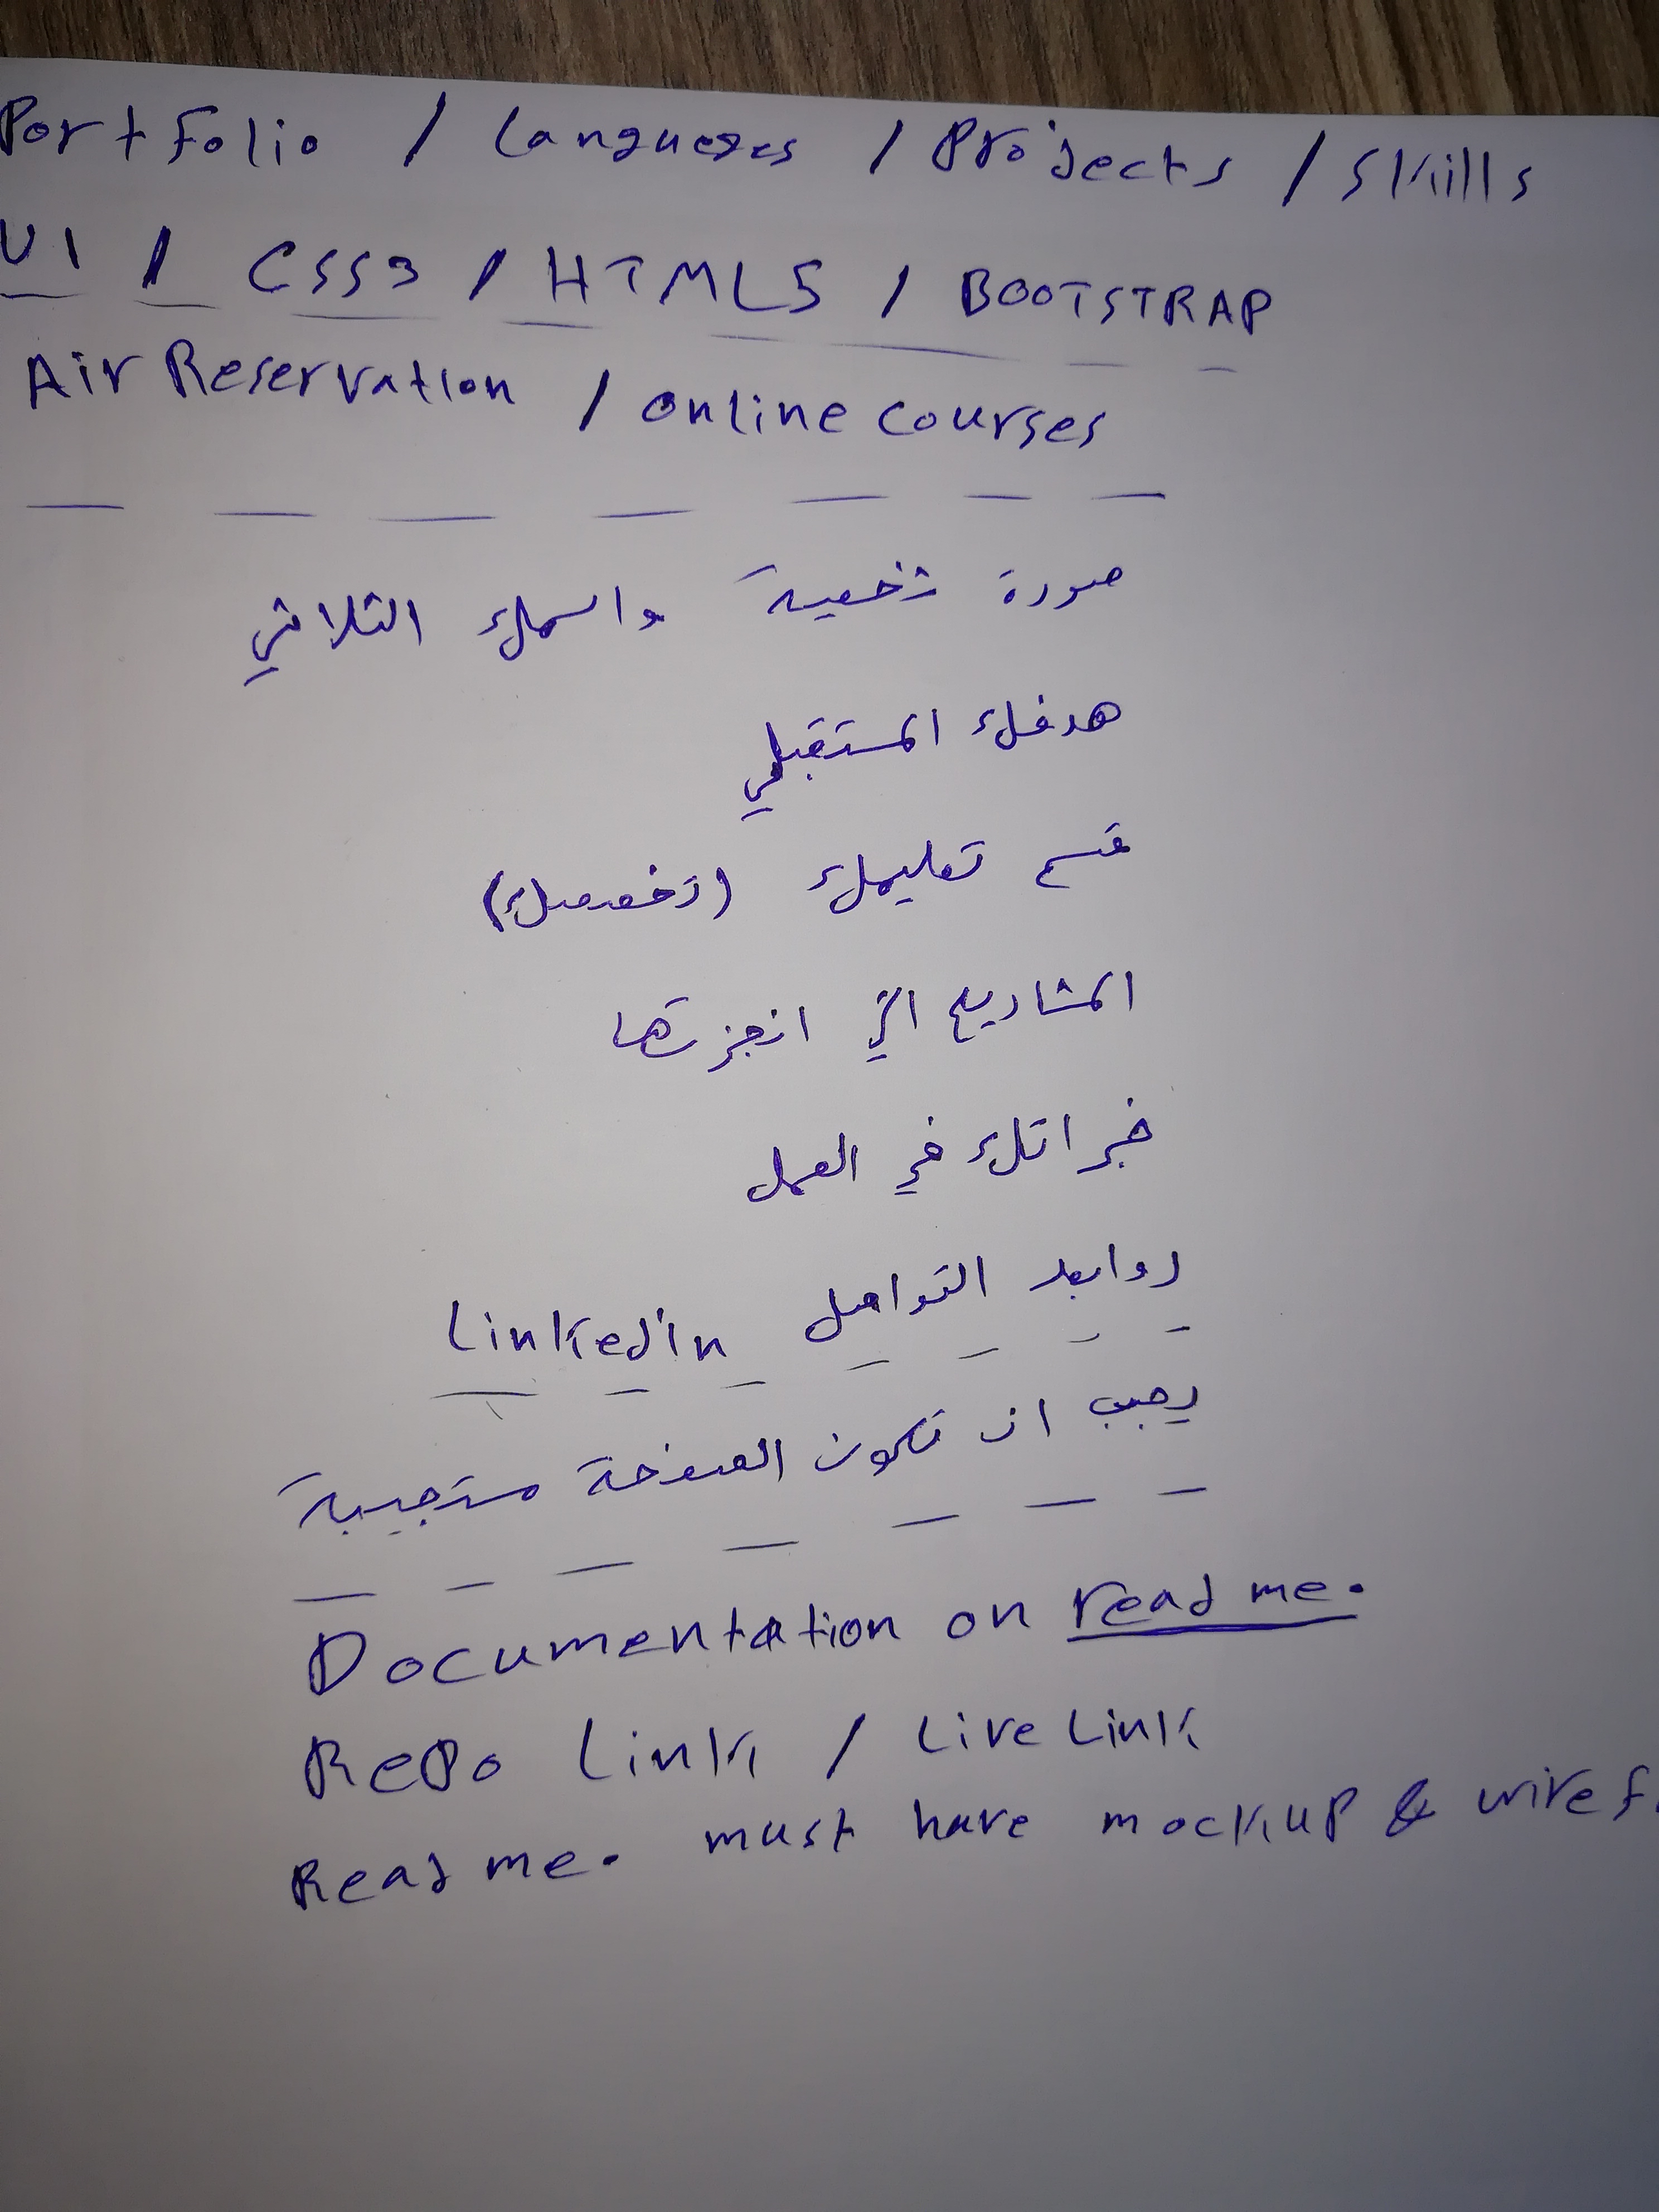 Portfolio / Langueges / Projects / skills
UI / CSS3 / HTML5 / BOOTSTRAP
Air Reservation / online courses
صورة شخصية واسمك الثلاثي
هدفك المستقبلي
قسم تعليمك (تخصصك)
المشاريع التي انجزتها
خبراتك في العمل
روابط التواصل Linkedin
يجب ان تكون الصفحة مستجيبة
Documentation on read me.
Repo Link / Live Link
Read me. must have mockup & wiref